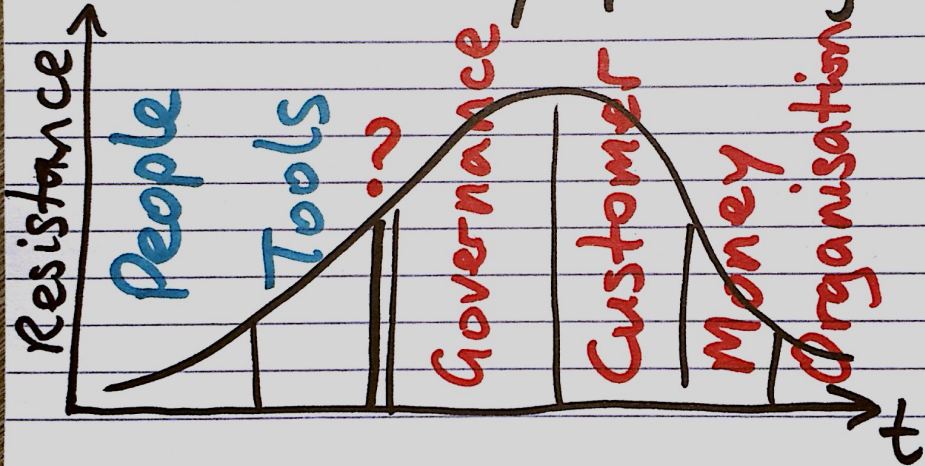 Resistance
People
Tools
?
Governance
Customer
Money
Organisation
t